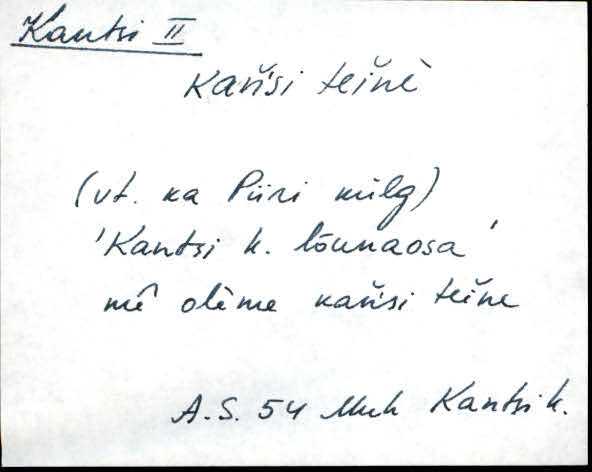 Kantsi II
kań̆si teišnè
(vt. ka Piiri külg)
'Kantsi k. lõunaosa'
mê olème kań̆si teišne
A.S. 54 Muh Kantsi k.